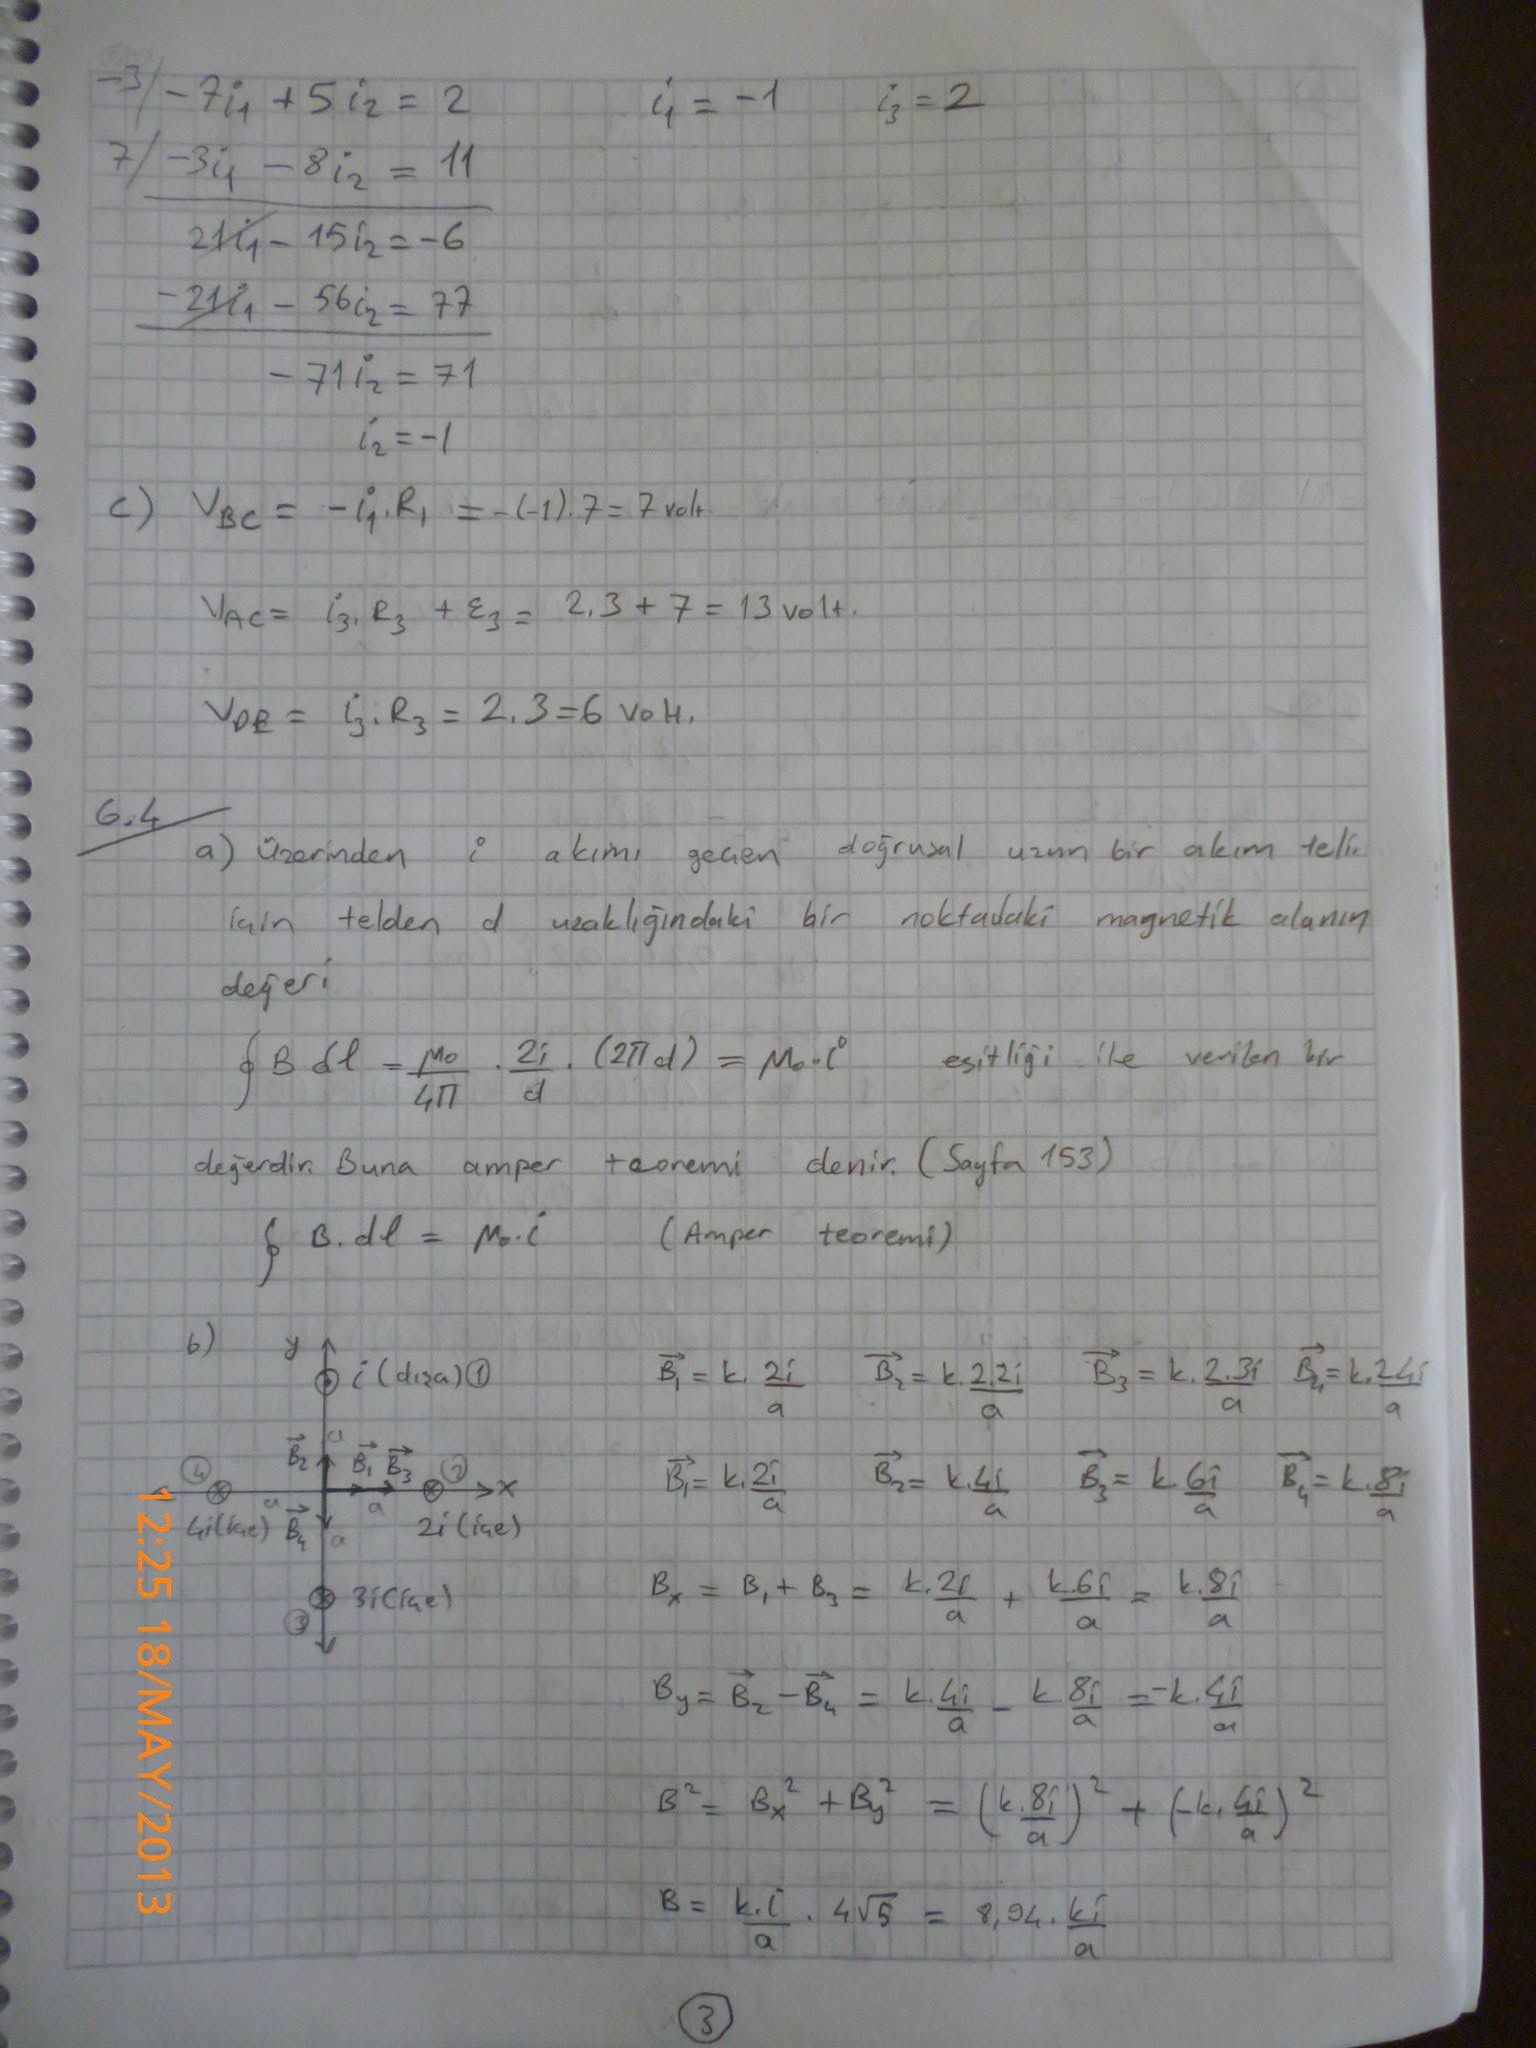 -3/ -7i₁ + 5i₂ = 2 i₁ = -1 i₃ = 2
7/ -3i₁ - 8i₂ = 11
21i₁ - 15i₂ = -6
-21i₁ - 56i₂ = 77
-71i₂ = 71
i₂ = -1
c) V_BC = -i₁.R₁ = -(-1).7 = 7 volt
V_AC = i₃.R₃ + ε₃ = 2.3 + 7 = 13 volt.
V_DE = i₃.R₃ = 2.3 = 6 volt.
6.4
a) Üzerinden i akımı geçen doğrusal uzun bir akım teli
için telden d uzaklığındaki bir noktadaki magnetik alanın
değeri
∮ B dl = μ₀/4π . 2i/d . (2πd) = μ₀.i eşitliği ile verilen bir
değerdir. Buna amper teoremi denir. (Sayfa 153)
∮ B.dl = μ₀.i (Amper teoremi)
b) y
i (dışa) ①
a
B⃗₂ B⃗₁ B⃗₃
④ ② x
a a
4i(içe) B⃗₄ a 2i (içe)
3i(içe)
③
B⃗₁ = k. 2i/a B⃗₂ = k. 2.2i/a B⃗₃ = k. 2.3i/a B⃗₄ = k. 2.4i/a
B⃗₁ = k. 2i/a B⃗₂ = k. 4i/a B⃗₃ = k. 6i/a B⃗₄ = k. 8i/a
Bx = B₁ + B₃ = k.2i/a + k.6i/a = k.8i/a
By = B⃗₂ - B⃗₄ = k.4i/a - k.8i/a = -k.4i/a
B² = Bx² + By² = (k.8i/a)² + (-k.4i/a)²
B = k.i/a . 4√5 = 8,94. ki/a
3
12:25 18/MAY/2013